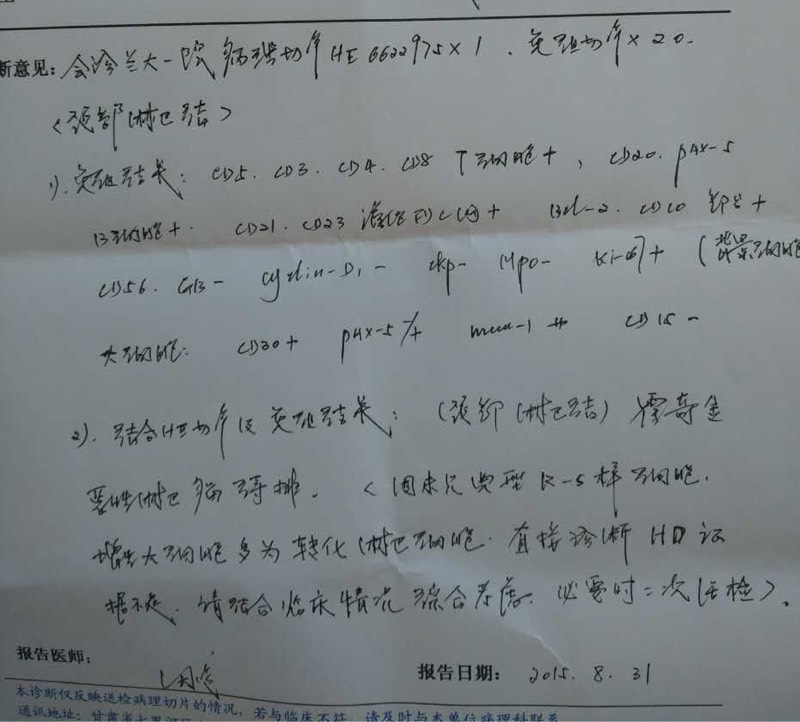 新意见：会诊兰大一院病理切片HE 6622975×1、免组切片×20.
<颈部淋巴结>
1). 免组结果：CD5. CD3. CD4. CD8 T细胞+，CD20. PAX-5
B细胞+. CD21. CD23 滤泡 + Bcl-2. CD10 部分+
CD56. GB- cyclin-D1- ckp- Mpo- Ki-67+ (背景细胞
大细胞: CD30+ PAX-5 + mum-1 + CD15-
2). 结合HE切片及免组结果：(颈部淋巴结) 霍奇金
恶性淋巴瘤待排. <因未见典型R-S样细胞.
增生大细胞多为转化淋巴细胞. 直接诊断HD证
据不足. 请结合临床情况综合考虑. 必要时二次活检>.
报告医师：
报告日期：2015. 8. 31
本诊断仅反映送检病理切片的情况，若与临床不符，请及时与本单位病理科联系
通讯地址：甘肃省